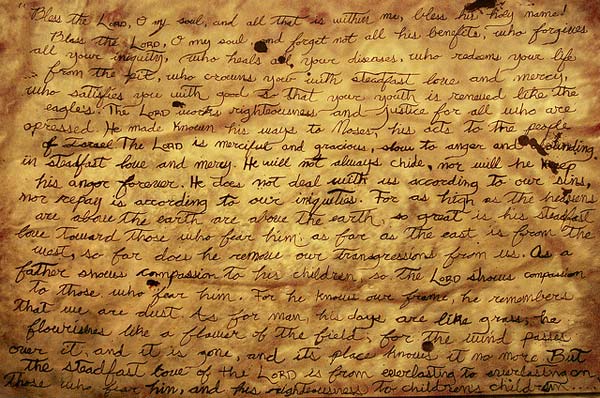 "Bless the LORD, O my soul, and all that is within me, bless his holy name!
Bless the LORD, O my soul and forget not all his benefits, who forgives
all your iniquity, who heals all your diseases, who redeems your life
from the pit, who crowns you with steadfast love and mercy,
who satisfies you with good so that your youth is renewed like the
eagles. The LORD works righteousness and justice for all who are
opressed. He made known his ways to Moses, his acts to the people
of Israel The LORD is merciful and gracious, slow to anger and abounding
in steadfast love and mercy. He will not always chide, nor will he keep
his anger forever. He does not deal with us according to our sins,
nor repay is according to our iniquities. For as high as the heavens
are above the earth are above the earth, so great is his steadfast
love toward those who fear him. as far as the east is from the
west, so far does he remove our transgressions from us. As a
father shows compassion to his children, so the LORD shows compassion
to those who fear him. For he knows our frame, he remembers
that we are dust As for man, his days are like grass; he
flourishes like a flower of the field; for the wind passes
over it, and it is gone, and its place knows it no more. But
the steadfast love of the LORD is from everlasting to everlasting on
those who fear him, and his righteousness to children's children....